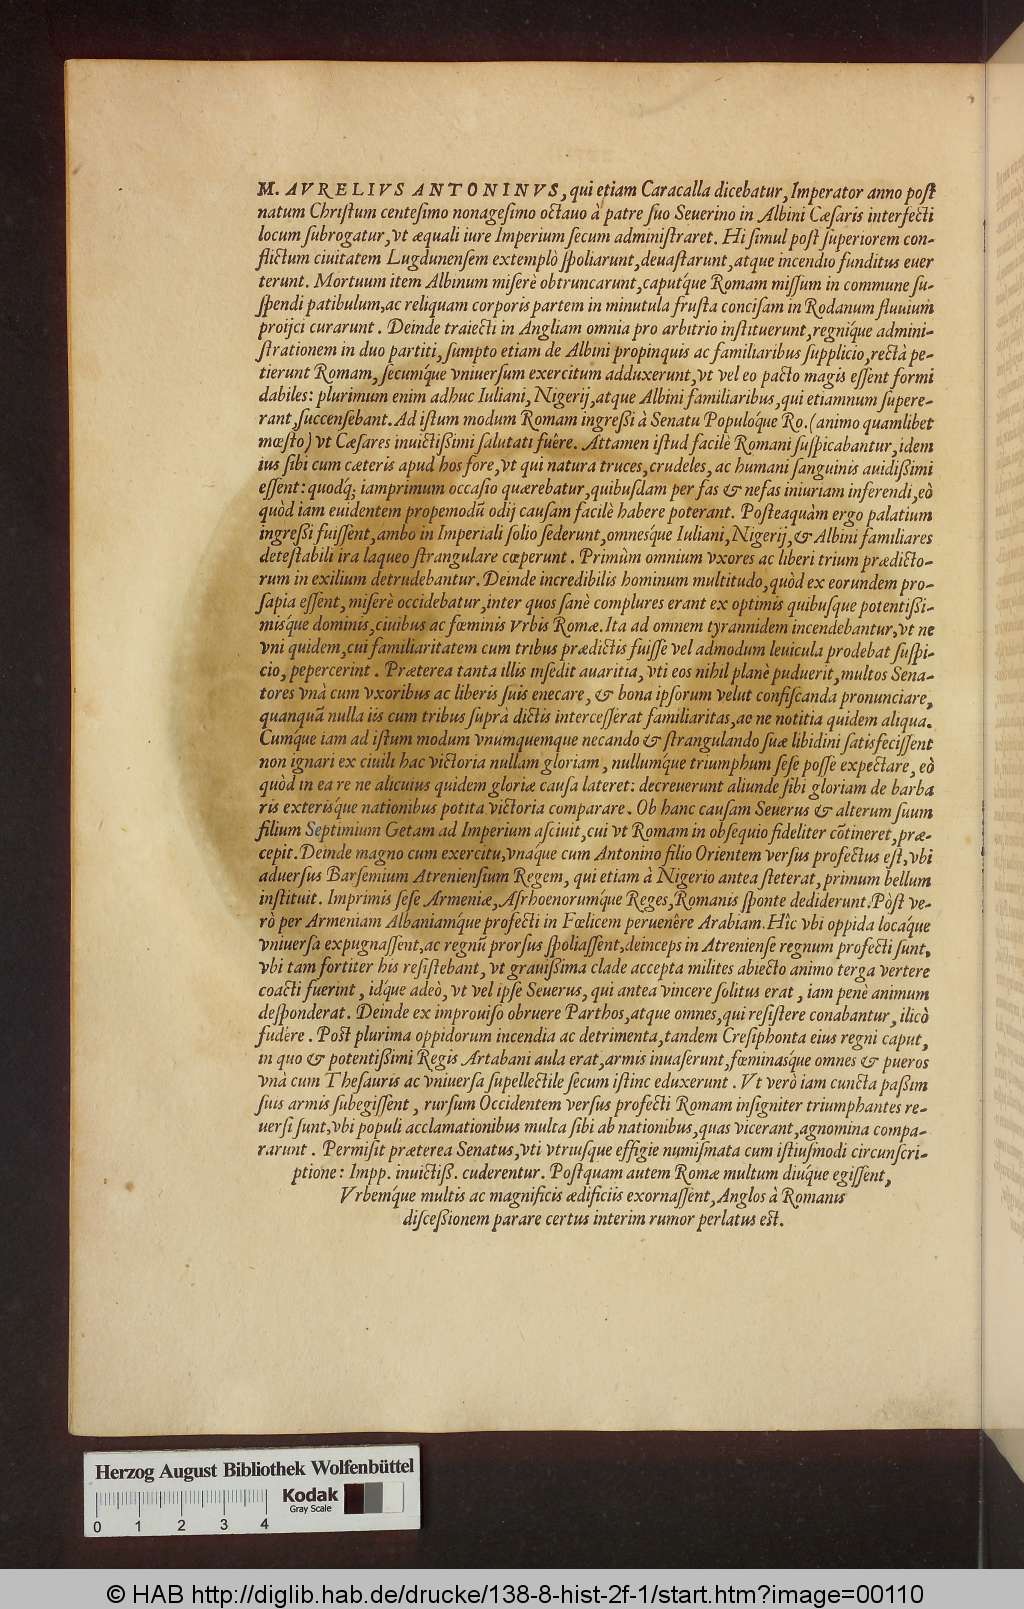 M. AVRELIVS ANTONINVS, qui etiam Caracalla dicebatur, Imperator anno poſt
natum Chriſtum centeſimo nonageſimo octauo à patre ſuo Seuerino in Albini Cæſaris interfecti
locum ſubrogatur, vt æquali iure Imperium ſecum adminiſtraret. Hi ſimul poſt ſuperiorem con-
flictum ciuitatem Lugdunenſem extemplò ſpoliarunt, deuaſtarunt, atque incendio funditus euer
terunt. Mortuum item Albinum miſerè obtruncarunt, caputq́ue Romam miſſum in commune ſu-
ſpendi patibulum, ac reliquam corporis partem in minutula fruſta conciſam in Rodanum fluuium
proijci curarunt. Deinde traiecti in Angliam omnia pro arbitrio inſtituerunt, regniq́ue admini-
ſtrationem in duo partiti, ſumpto etiam de Albini propinquis ac familiaribus ſupplicio, rectà pe-
tierunt Romam, ſecumq́ue vniuerſum exercitum adduxerunt, vt vel eo pacto magis eſſent formi
dabiles: plurimum enim adhuc Iuliani, Nigerij, atque Albini familiaribus, qui etiamnum ſupere-
rant, ſuccenſebant. Ad iſtum modum Romam ingreſſi à Senatu Populoq́ue Ro. (animo quamlibet
mœſto) vt Cæſares inuictißimi ſalutati fuêre. Attamen iſtud facilè Romani ſuſpicabantur, idem
ius ſibi cum cæteris apud hos fore, vt qui natura truces, crudeles, ac humani ſanguinis auidißimi
eſſent: quodq́; iamprimum occaſio quærebatur, quibuſdam per fas & nefas iniuriam inferendi, eò
quòd iam euidentem propemodū odij cauſam facilè habere poterant. Poſteaquàm ergo palatium
ingreßi fuiſſent, ambo in Imperiali ſolio ſederunt, omnesq́ue Iuliani, Nigerij, & Albini familiares
deteſtabili ira laqueo ſtrangulare cœperunt. Primùm omnium vxores ac liberi trium prædicto-
rum in exilium detrudebantur. Deinde incredibilis hominum multitudo, quòd ex eorundem pro-
ſapia eſſent, miſerè occidebatur, inter quos ſanè complures erant ex optimis quibuſque potentißi-
miſq́ue dominis, ciuibus ac fœminis vrbis Romæ. Ita ad omnem tyrannidem incendebantur, vt ne
vni quidem, cui familiaritatem cum tribus prædictis fuiſſe vel admodum leuicula prodebat ſuſpi-
cio, pepercerint. Præterea tanta illis inſedit auaritia, vti eos nihil planè puduerit, multos Sena-
tores vnà cum vxoribus ac liberis ſuis enecare, & bona ipſorum velut confiſcanda pronunciare,
quanquā nulla iis cum tribus ſuprà dictis interceſſerat familiaritas, ac ne notitia quidem aliqua.
Cumq́ue iam ad iſtum modum vnumquemque necando & ſtrangulando ſuæ libidini ſatisfeciſſent
non ignari ex ciuili hac victoria nullam gloriam, nullumq́ue triumphum ſeſe poſſe expectare, eò
quòd in ea re ne alicuius quidem gloriæ cauſa lateret: decreuerunt aliunde ſibi gloriam de barba
ris exteriſq́ue nationibus potita victoria comparare. Ob hanc cauſam Seuerus & alterum ſuum
filium Septimium Getam ad Imperium aſciuit, cui vt Romam in obſequio fideliter cōtineret, præ-
cepit. Deinde magno cum exercitu, vnáque cum Antonino filio Orientem verſus profectus eſt, vbi
aduerſus Barſemium Atrenienſium Regem, qui etiam à Nigerio antea ſteterat, primum bellum
inſtituit. Imprimis ſeſe Armeniæ, Aſrhoenorumq́ue Reges, Romanis ſponte dediderunt. Pòſt ve-
rò per Armeniam Albaniamq́ue profecti in Fœlicem peruenêre Arabiam. Hîc vbi oppida locaq́ue
vniuerſa expugnaſſent, ac regnū prorſus ſpoliaſſent, deinceps in Atrenienſe regnum profecti ſunt,
vbi tam fortiter his reſiſtebant, vt grauißima clade accepta milites abiecto animo terga vertere
coacti fuerint, idq́ue adeò, vt vel ipſe Seuerus, qui antea vincere ſolitus erat, iam penè animum
deſponderat. Deinde ex improuiſo obruere Parthos, atque omnes, qui reſiſtere conabantur, ilicò
fudêre. Poſt plurima oppidorum incendia ac detrimenta, tandem Creſiphonta eius regni caput,
in quo & potentißimi Regis Artabani aula erat, armis inuaſerunt, fœminasq́ue omnes & pueros
vnà cum Theſauris ac vniuerſa ſupellectile ſecum iſtinc eduxerunt. Vt verò iam cuncta paßim
ſuis armis ſubegiſſent, rurſum Occidentem verſus profecti Romam inſigniter triumphantes re-
uerſi ſunt, vbi populi acclamationibus multa ſibi ab nationibus, quas vicerant, agnomina compa-
rarunt. Permiſit præterea Senatus, vti vtriuſque effigie numiſmata cum iſtiuſmodi circunſcri-
ptione: Impp. inuictiß. cuderentur. Poſtquam autem Romæ multum diuq́ue egiſſent,
Vrbemq́ue multis ac magnificis ædificiis exornaſſent, Anglos à Romanis
diſceßionem parare certus interim rumor perlatus eſt.
Herzog August Bibliothek Wolfenbüttel
Kodak
Gray Scale
0 1 2 3 4
© HAB http://diglib.hab.de/drucke/138-8-hist-2f-1/start.htm?image=00110